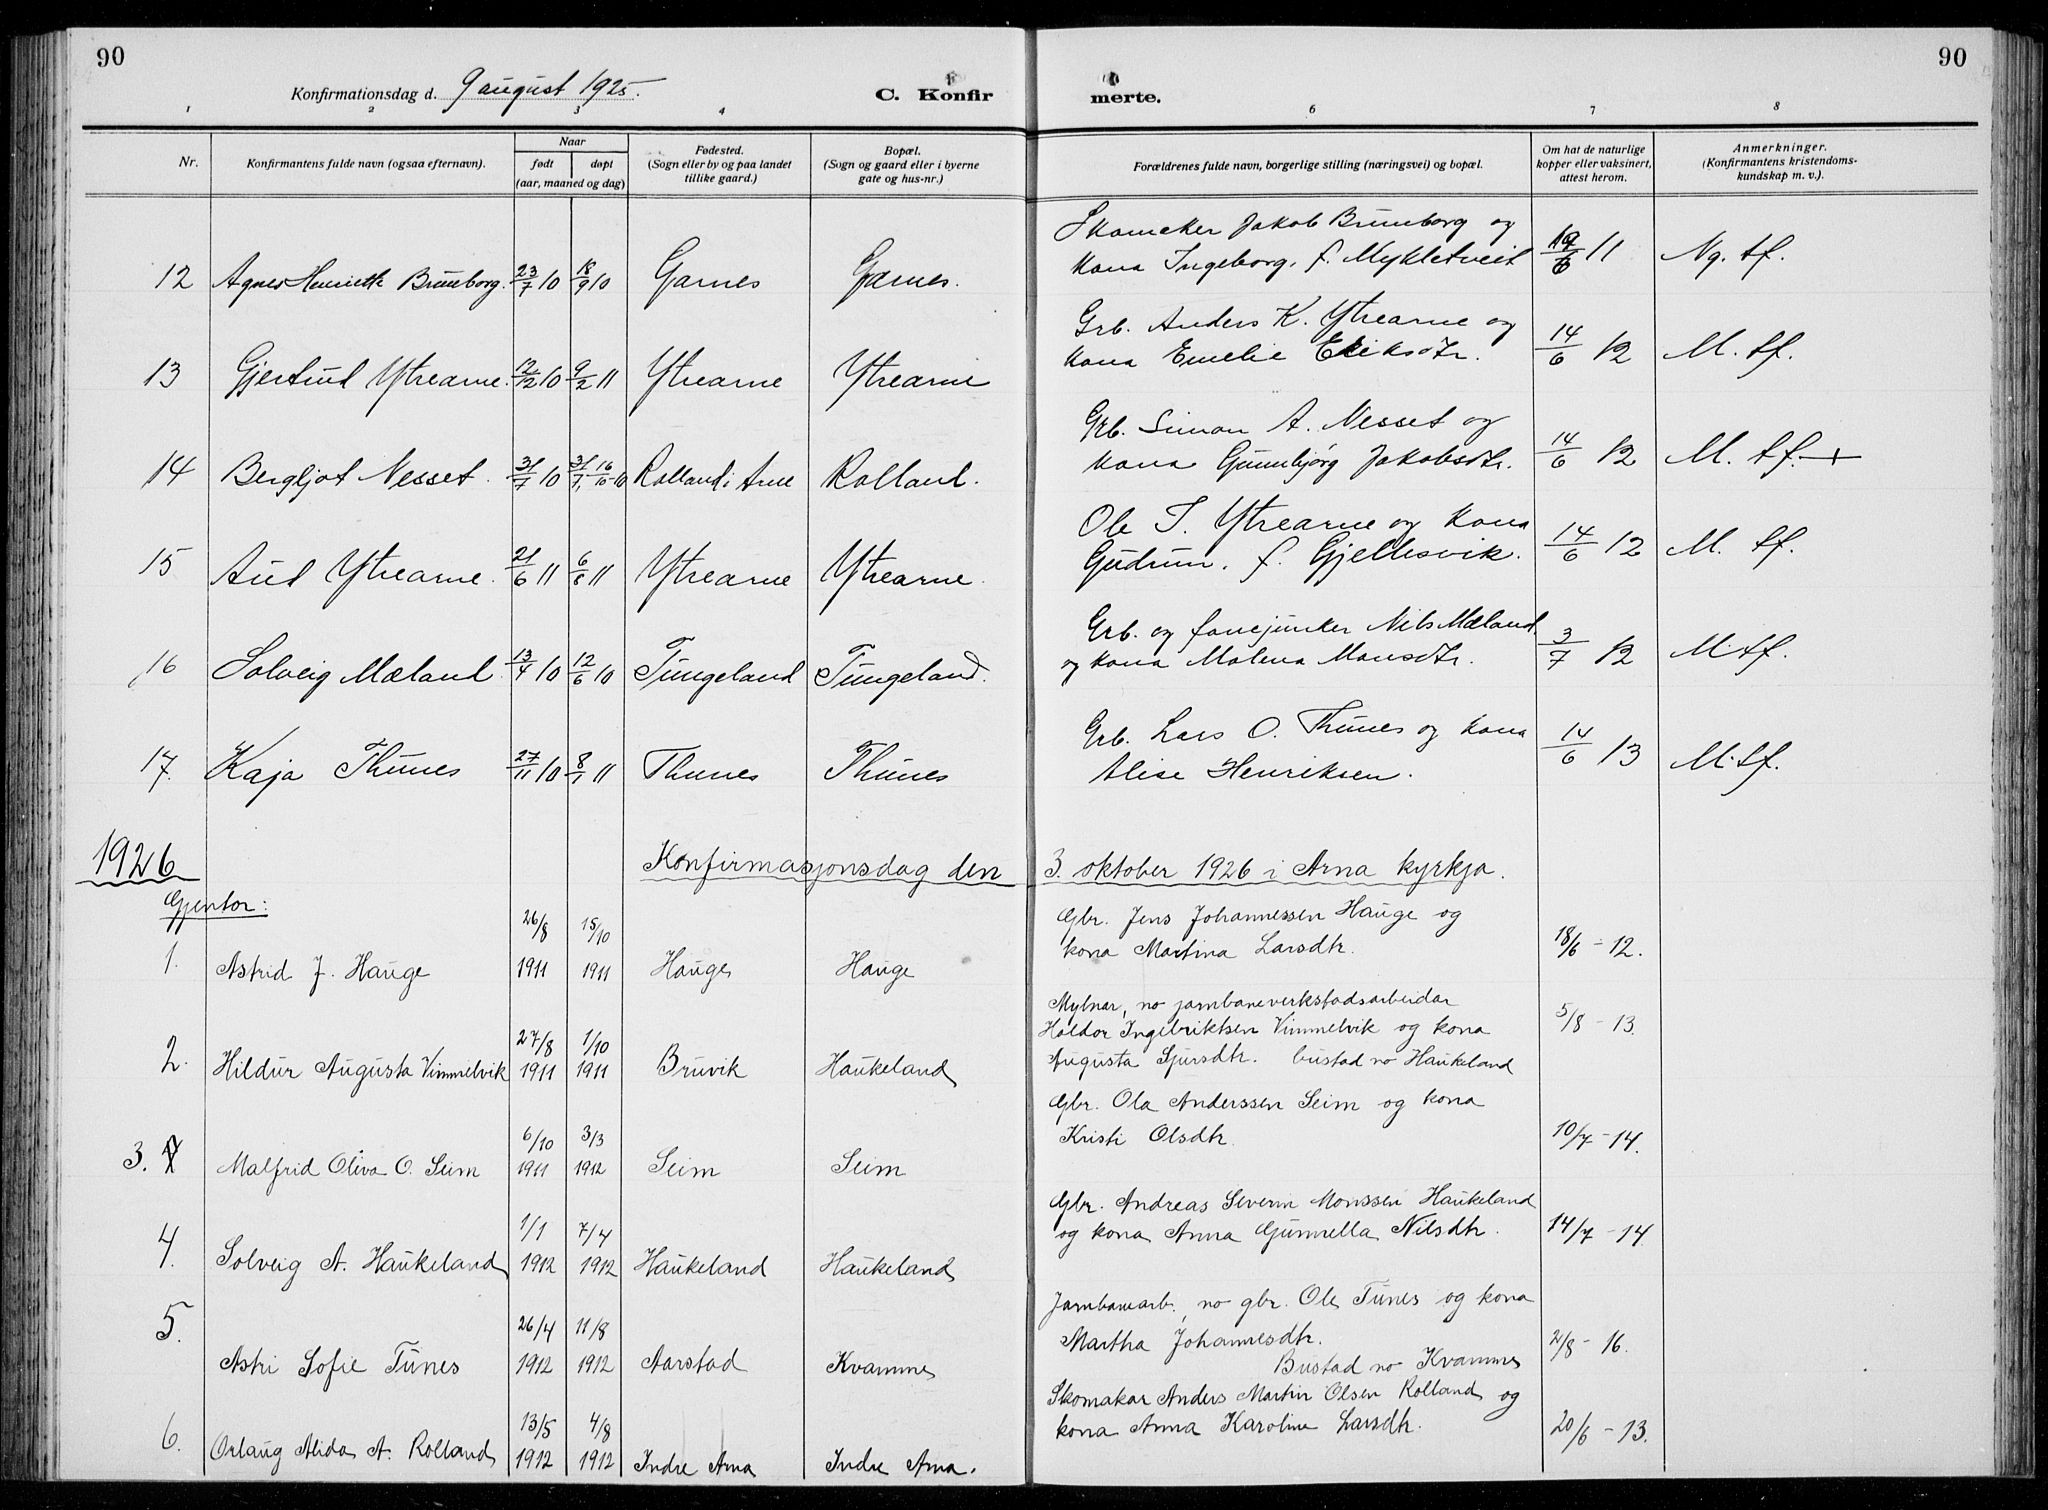 90
90
Konfirmationsdag d. 9 august 1925.
C. Konfir
merte.
1 2 3 4 6 7 8
Nr.
Konfirmantens fulde navn (ogsaa efternavn).
Naar
født
døpt
(aar, maaned og dag)
Fødested.
(Sogn eller by og paa landet
tillike gaard.)
Bopæl.
(Sogn og gaard eller i byerne
gate og hus-nr.)
Forældrenes fulde navn, borgerlige stilling (næringsvei) og bopæl.
Om hat de naturlige
kopper eller vaksinert,
attest herom.
Anmerkninger.
(Konfirmantens kristendoms-
kundskap m. v.).
Skomaker Jakob Brunborg og
12 Agnes Henriette Brunborg. 23/7 10 18/9 10 Garnes Garnes. kona Ingeborg, f. Mykletveit 11 Ng. tf.
Grb. Anders K. Ytrearne og
13 Gjertrud Ytrearne. 12/12 10 9/2 11 Ytrearne Ytrearne kona Emelie Eriksdtr. 14/6 12 M. tf.
Grb. Simon A. Nesset og
14 Bergljot Nesset. 31/7 10 31/7, 16/10-10 Rolland i Arne Rolland. kona Gunnbjørg Jakobsdtr. 14/6 12 M. tf. +
Ole T. Ytrearne og kona
15 Aud Ytrearne. 21/6 11 6/8 11 Ytrearne Ytrearne. Gudrun, f. Gjellesvik. 14/6 12 M. tf.
Grb. og fanejunker Nils Mæland
16 Solveig Mæland 13/4 10 12/6 10 Tungeland Tungeland. og kona Malena Monsdtr. 3/7 12 M. tf.
Grb. Lars O. Thunes og kona
17. Kaja Thunes 27/11 10 8/1 11 Thunes Thunes Alise Henriksen. 14/6 13 M. tf.
1926 Konfirmasjonsdag den 3. oktober 1926 i Arna kyrkja.
Gjentor:
26/8 15/10 Gbr. Jens Johannessen Hauge og
1. Astrid J. Hauge 1911 1911 Hauge Hauge kona Martina Larsdtr. 18/6 - 12.
Mylnar, no jarnbaneverkstadsarbeidar
27/8 1/10 Haldor Ingebriktsen Vimmelvik og kona 5/8 - 13.
2. Hildur Augusta Vimmelvik 1911 1911 Bruvik Haukeland Augusta Sjursdtr. bustad no Haukeland
Gbr. Ola Anderssen Seim og kona
6/10 3/3 Kristi Olsdtr. 10/7 - 14.
3. Malfrid Oliva O. Seim 1911 1912 Seim Seim
Gbr. Andreas Severin Monssen Haukeland
1/1 7/4 og kona Anna Gunnella Nilsdtr. 14/7 - 14.
4. Solveig A. Haukeland 1912 1912 Haukeland Haukeland
Jarnbanearb., no gbr. Ole Tunes og kona
5. 26/4 11/8 Martha Johannesdtr. 2/8 - 16.
Astri Sofie Tunes 1912 1912 Aarstad Kvamme Bustad no Kvamme
Skomakar Anders Martin Olsen Rolland og
6. 13/5 4/8 kona Anna Karoline Larsdtr. 20/6 - 13.
Orlaug Alida A. Rolland 1912 1912 Indre Arna Indre Arna.